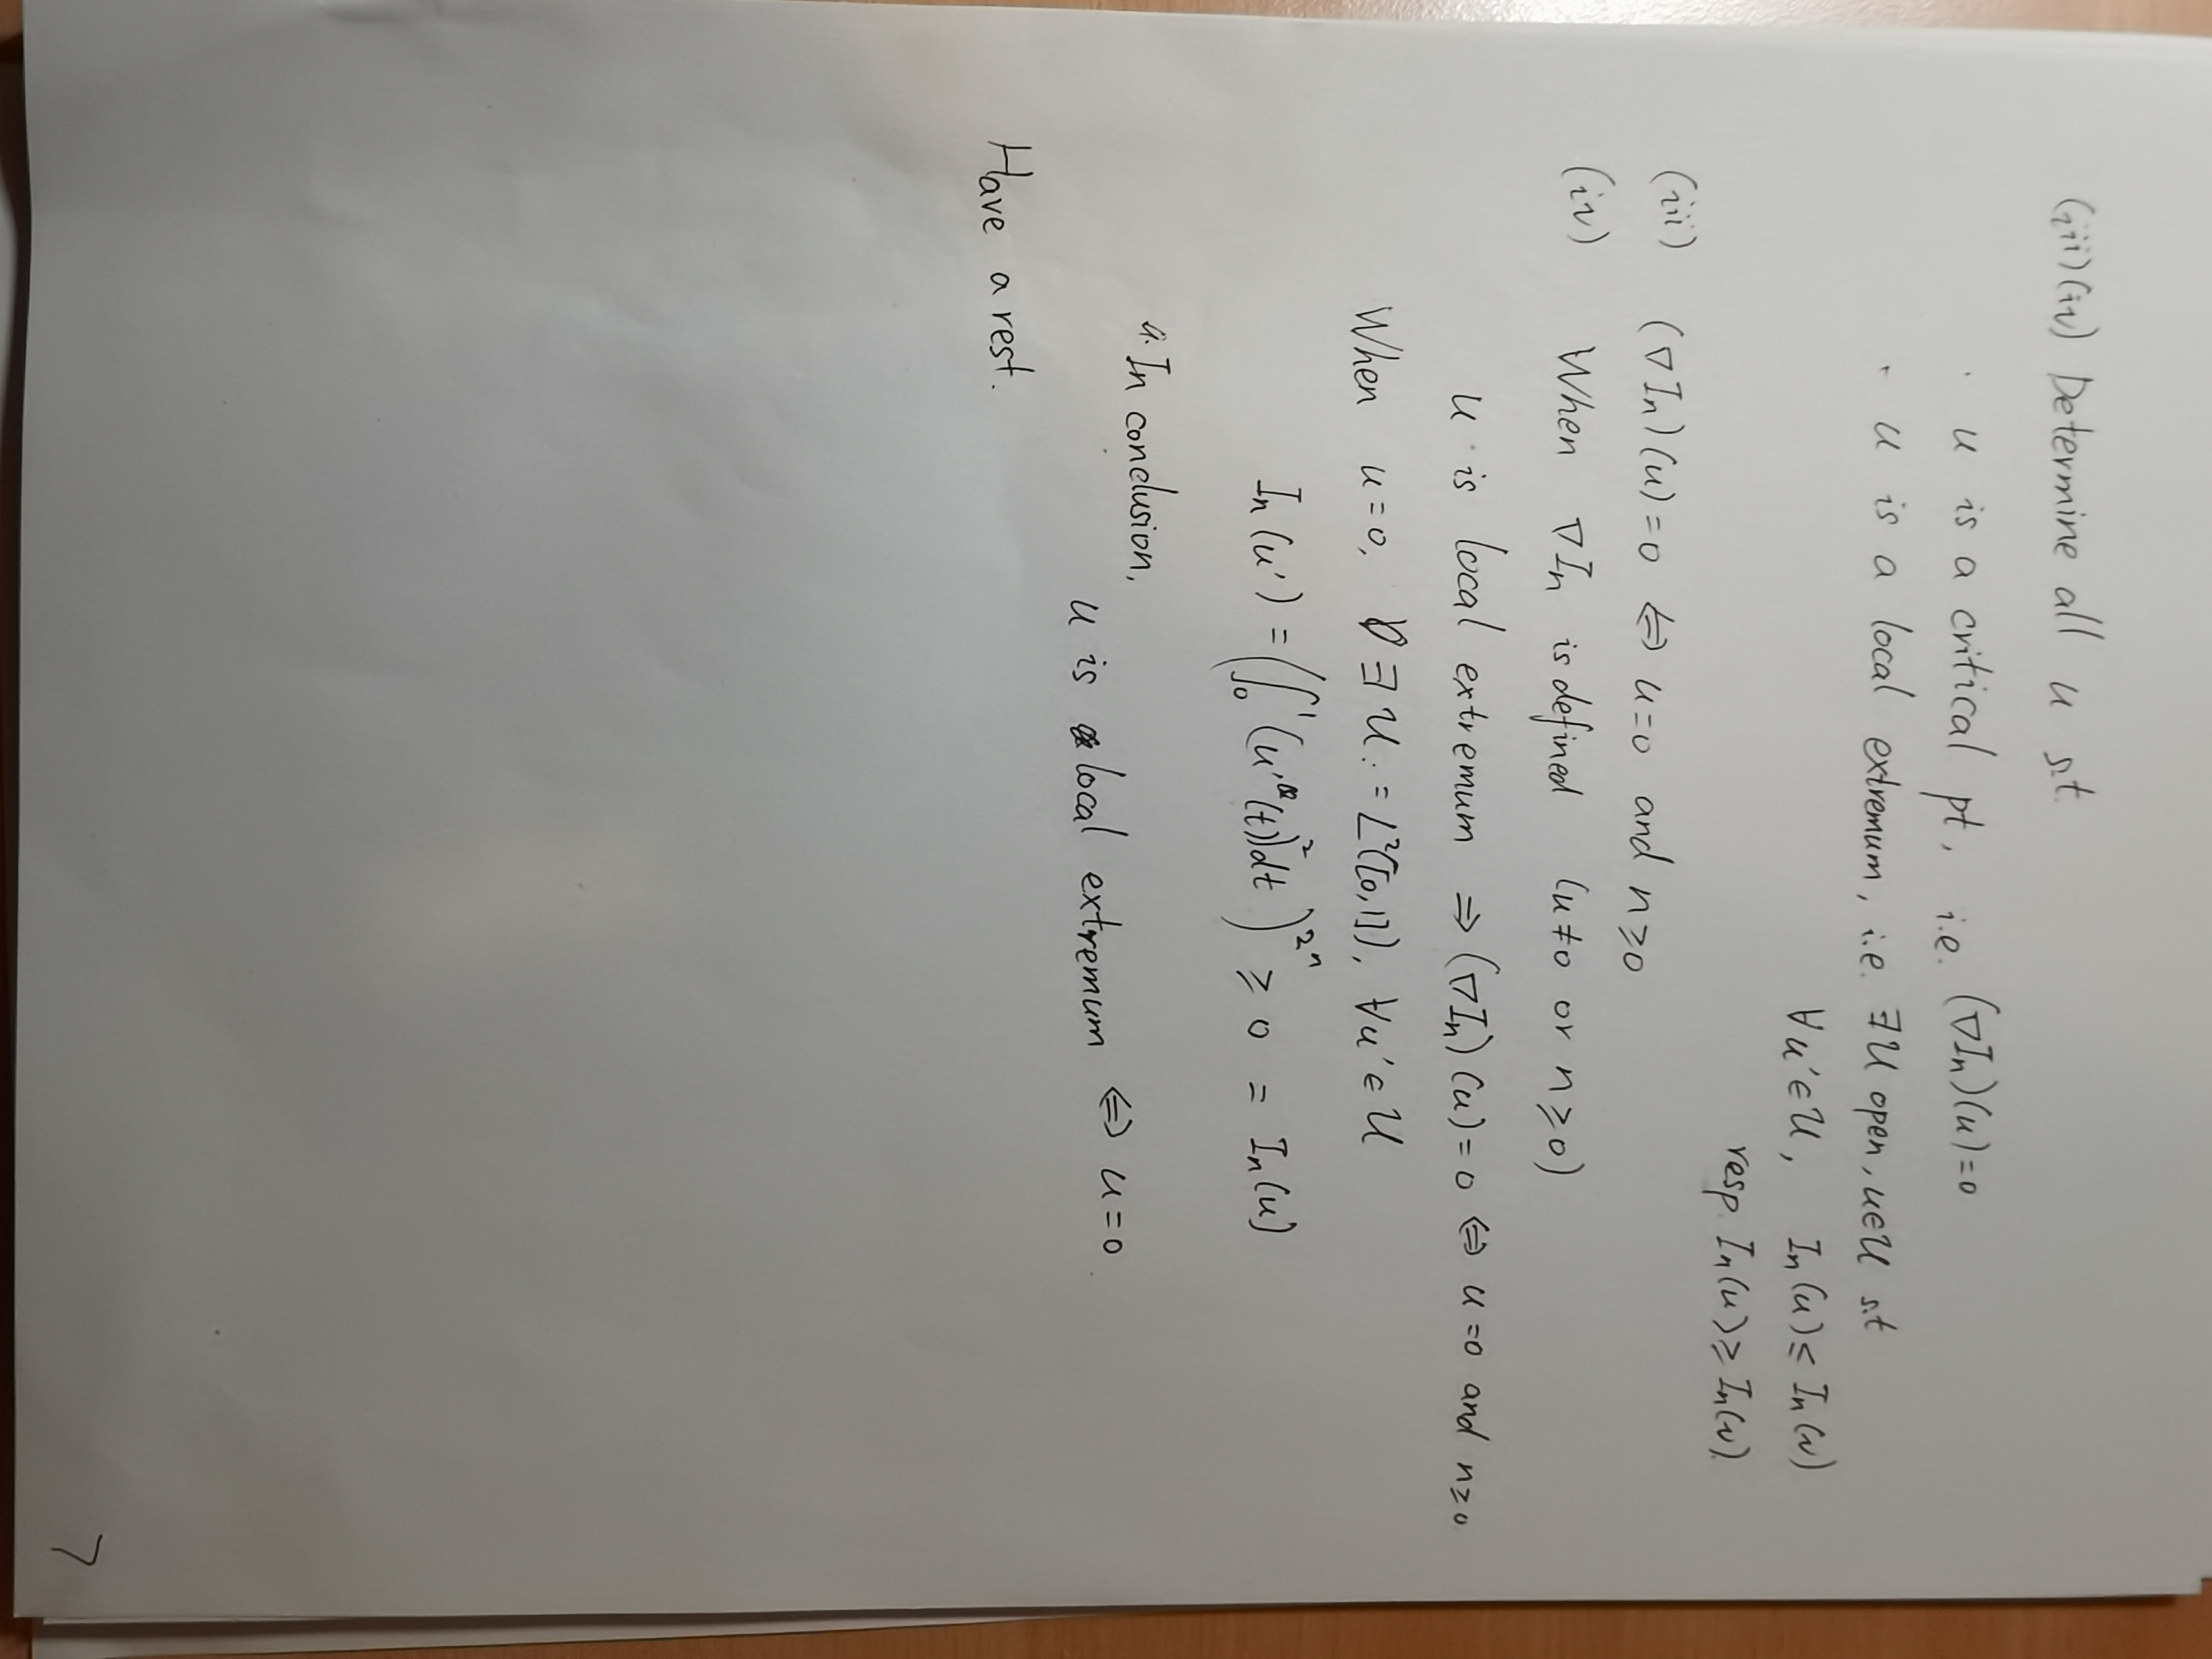 (iii)(iv) Determine all u s.t
· u is a critical pt, i.e. (∇In)(u)=0
· u is a local extremum, i.e. ∃U open, u∈U s.t
∀u'∈U, In(u)≤In(v)
resp. In(u)≥In(v)
(iii) (∇In)(u)=0 ⇔ u=0 and n≥0
(iv) When ∇In is defined (u≠0 or n≥0)
u is local extremum ⇒ (∇In)(u)=0 ⇔ u=0 and n≥0
When u=0, ∃U:=L²([0,1]), ∀u'∈U
In(u')=(∫₀¹(u'(t))²dt)^{2^n} ≥ 0 = In(u)
In conclusion,
u is local extremum ⇔ u=0
Have a rest.
7